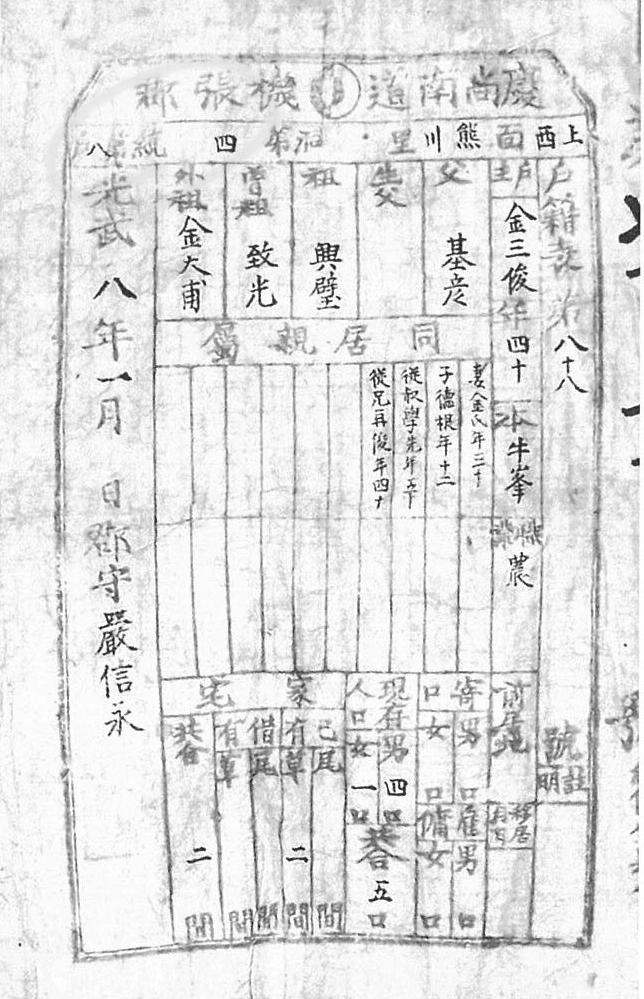 慶尚南道 機張郡
上西面熊川里 洞第四統第八戶
戶籍表 第八十八號
註明
戶主 金三俊 年四十 本牛峯 職業 農
前居地
移居月日
父 基彦
生父
祖 興璧
曾祖 致光
外祖 金大甫
同居親屬
妻金氏年三十
子德根年十二
從叔學先年五十
從兄再俊年四十
寄口 男 口 女 口
雇男 口 傭女 口
現在人口 男四口 女一口
共合 五口
家宅
己有 瓦 間 草二間
借有 瓦 間 草 間
共合 二間
光武八年一月 日 郡守嚴信永